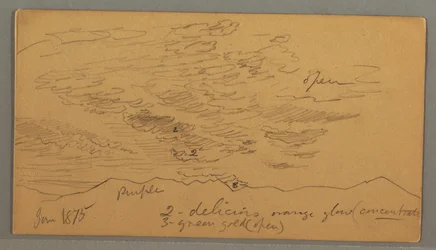 open
1
2
3
purple
Jan 1875
2 - delicious orange glow (concentrate
3 - green gold (open)